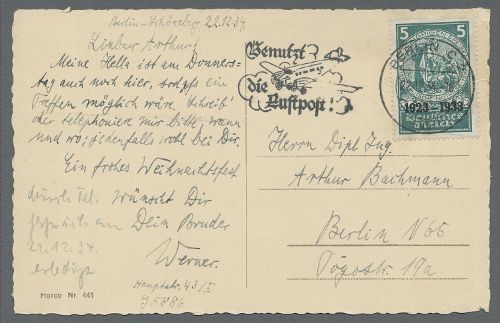 Berlin-Schöneberg 22.12.34
Lieber Arthur!
Meine Hella ist am Donners-
tag auch noch hier, sodass ein
Treffen möglich wäre. Schreib'
oder telephoniere mir bitte, wann
und wo; jedenfalls wohl bei Dir.
Ein frohes Weihnachtsfest
wünscht Dir
Dein Bruder
Werner.
Hauptstr. 43/I
J5886
durch Tel.
gespräch am
22.12.34
erledigt
Horco Nr 441
Benutzt
die
Luftpost!
BERLIN
5
5
1923-1933
Deutsches
Reich
Herrn Dipl. Ing.
Arthur Bachmann
Berlin N65
Togostr. 19a